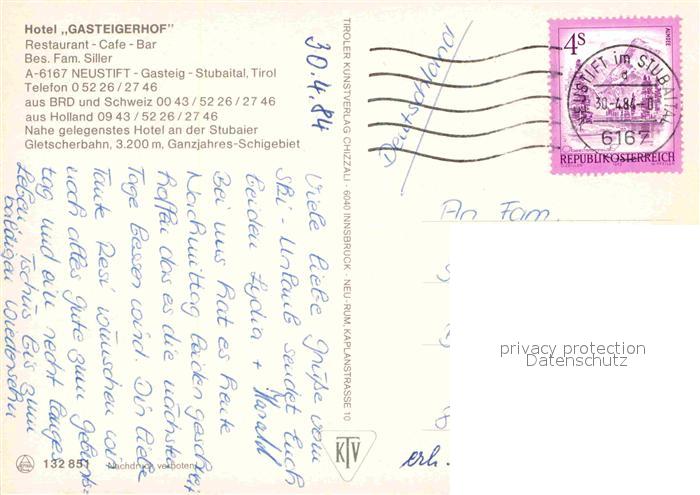 Hotel „GASTEIGERHOF"
Restaurant - Cafe - Bar
Bes. Fam. Siller
A-6167 NEUSTIFT - Gasteig - Stubaital, Tirol
Telefon 0 52 26 / 27 46
aus BRD und Schweiz 00 43 / 52 26 / 27 46
aus Holland 09 43 / 52 26 / 27 46
Nahe gelegenstes Hotel an der Stubaier
Gletscherbahn, 3.200 m, Ganzjahres-Schigebiet
30.4.84
Viele liebe Grüße vom
Ski-Urlaub sendet Euch
beiden Lydia + Harald
Bei uns hat es heute
Nachmittag leider geschneit
hoffen das es die nächsten
Tage besser wird. Dir liebe
Tante Resi wünschen wir
noch alles Gute zum Geburts-
tag und ein recht langes
Leben. Tschüs bis zum
baldigen Wiedersehn
132 851
Nachdruck verboten
TIROLER KUNSTVERLAG CHIZZALI · 6040 INNSBRUCK - NEU-RUM, KAPLANSTRASSE 10
KTV
Deutschland
4S
ALMSEE
REPUBLIK ÖSTERREICH
NEUSTIFT im STUBAITAL
a
30.-4.84-0
6167
An Fam.
erh.
privacy protection
Datenschutz